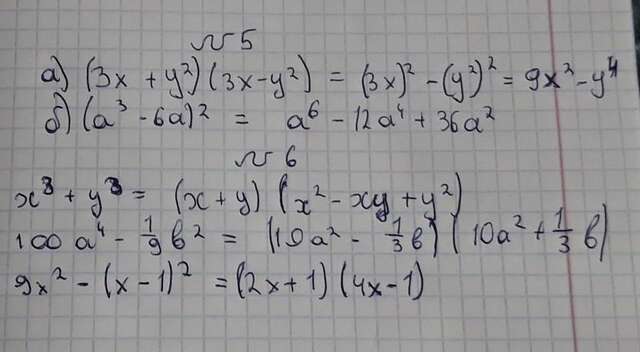 № 5
а) (3x + y²)(3x - y²) = (3x)² - (y²)² = 9x² - y⁴
б) (a³ - 6a)² = a⁶ - 12a⁴ + 36a²
№ 6
x³ + y³ = (x + y) (x² - xy + y²)
100a⁴ - 1/9 b² = (10a² - 1/3 b) (10a² + 1/3 b)
9x² - (x - 1)² = (2x + 1) (4x - 1)